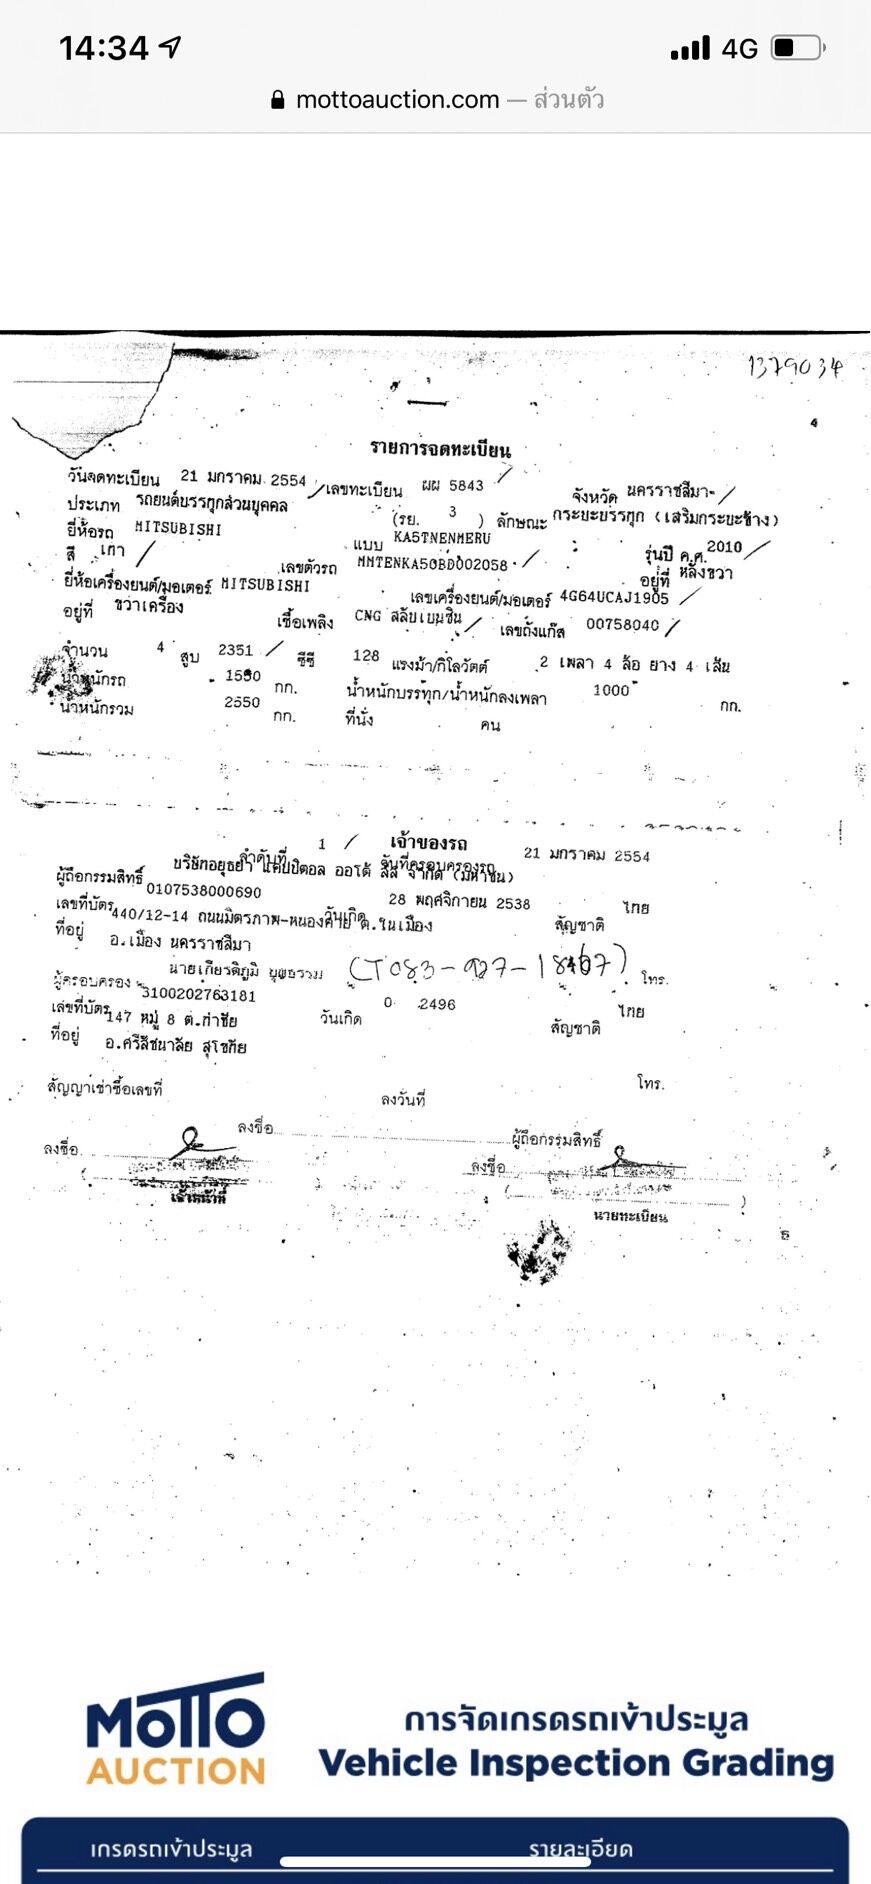 14:34
4G
mottoauction.com — ส่วนตัว
1379034
4
รายการจดทะเบียน
วันจดทะเบียน 21 มกราคม 2554 เลขทะเบียน ผผ 5843 จังหวัด นครราชสีมา
ประเภท รถยนต์บรรทุกส่วนบุคคล (รย. 3 ) ลักษณะ กระบะบรรทุก (เสริมกระบะข้าง)
ยี่ห้อรถ MITSUBISHI แบบ KA5TNENMERU รุ่นปี ค.ศ. 2010
สี เทา เลขตัวรถ MMTENKA50BD002058 อยู่ที่ หลังขวา
ยี่ห้อเครื่องยนต์/มอเตอร์ MITSUBISHI เลขเครื่องยนต์/มอเตอร์ 4G64UCAJ1905
อยู่ที่ ขวาเครื่อง เชื้อเพลิง CNG สลับเบนซิน เลขถังแก๊ส 00758040
จำนวน 4 สูบ 2351 ซีซี 128 แรงม้า/กิโลวัตต์ 2 เพลา 4 ล้อ ยาง 4 เส้น
น้ำหนักรถ 1550 กก. น้ำหนักบรรทุก/น้ำหนักลงเพลา 1000 กก.
น้ำหนักรวม 2550 กก. ที่นั่ง คน
เจ้าของรถ
ลำดับที่ 1 วันที่ครอบครองรถ 21 มกราคม 2554
ผู้ถือกรรมสิทธิ์ บริษัทอยุธยา แคปปิตอล ออโต้ ลีส จำกัด (มหาชน)
เลขที่บัตร 0107538000690 วันเกิด 28 พฤศจิกายน 2538 สัญชาติ ไทย
ที่อยู่ 440/12-14 ถนนมิตรภาพ-หนองคาย ต.ในเมือง
อ.เมือง นครราชสีมา
ผู้ครอบครอง นายเกียรติภูมิ (T083-927-18467) โทร.
เลขที่บัตร 3100202763181 วันเกิด 0 2496 สัญชาติ ไทย
ที่อยู่ 147 หมู่ 8 ต.ท่าชัย
อ.ศรีสัชนาลัย สุโขทัย
สัญญาเช่าซื้อเลขที่ ลงวันที่ โทร.
ลงชื่อ ผู้ถือกรรมสิทธิ์
ลงชื่อ ลงชื่อ
เจ้าหน้าที่ นายทะเบียน
MOTTO
AUCTION
การจัดเกรดรถเข้าประมูล
Vehicle Inspection Grading
เกรดรถเข้าประมูล รายละเอียด